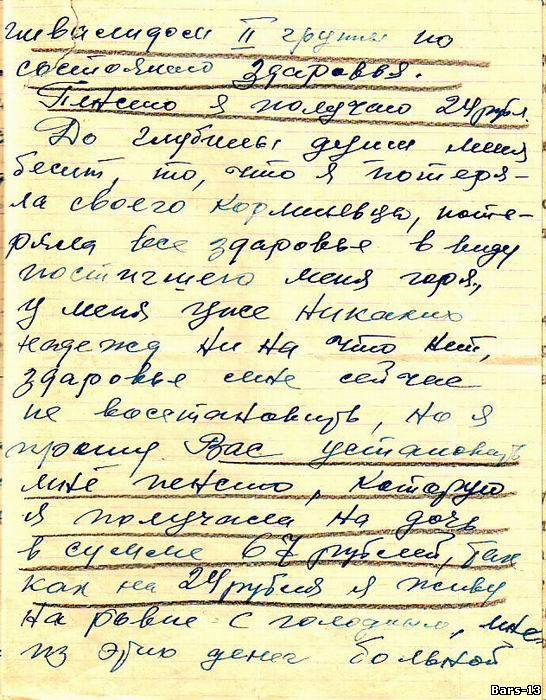 инвалидом II группы по
состоянию здаровья.
Пенсию я получаю 24 рубл.
До глубины души меня
бесит, то, что я потеря-
ла своего кормильца, поте-
ряла все здаровье в виду
постигшего меня горя,
у меня уже никаких
надежд ни на что нет,
здаровье мне сейчас
не восстановить, но я
прошу Вас установить
мне пенсию, которую
я получала на дочь
в сумме 67 рублей, так
как на 24 рубля я живу
на равне с голодным, мне
из этих денег больной
Bars-13